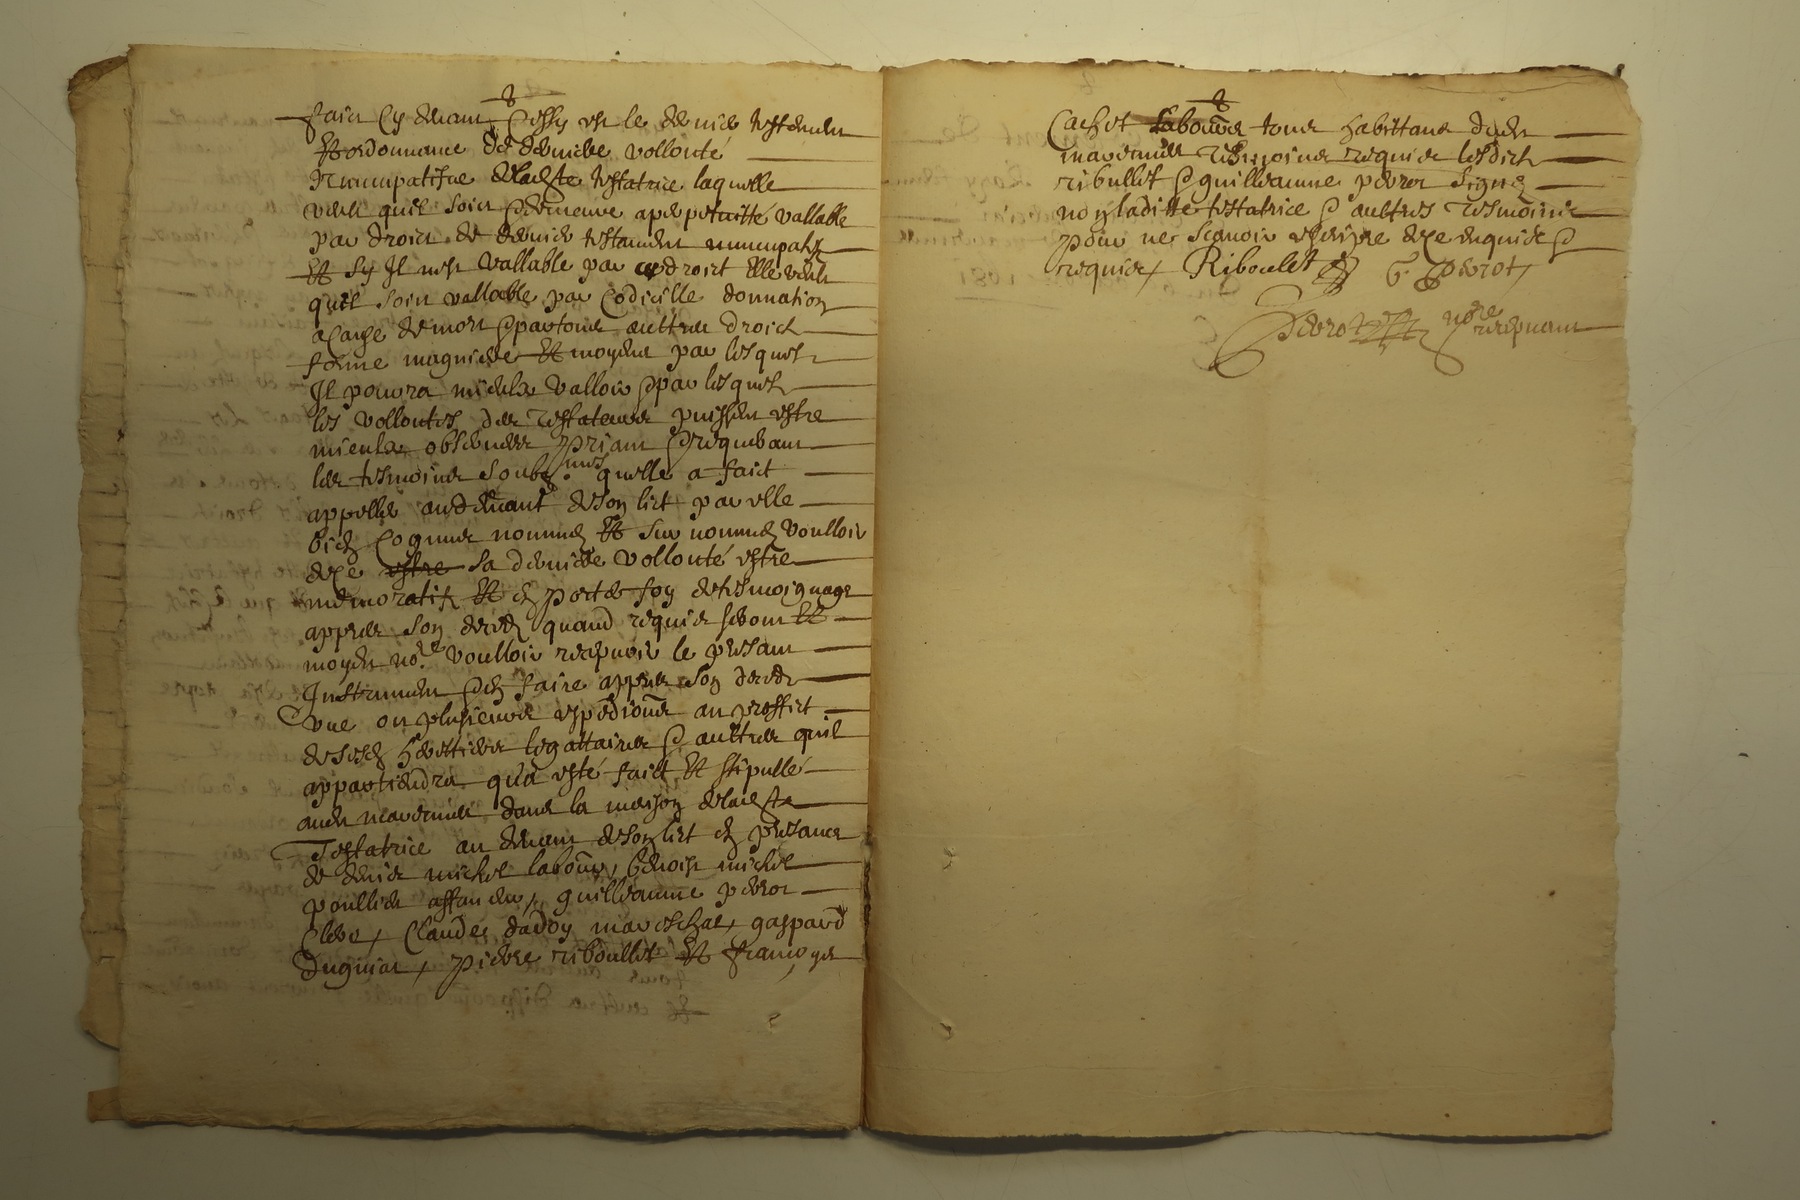 faict cy devant Cessy est le dernier testement
Et ordonnance de derniere vollonté
Nuncupatifve de ladte testatrice laquelle
veult quil soict & demeure a perpetuitté vallable
par droict de dernier testament nuncupatif
Et sy Il nest vallable par ce droict Elle veult
quil soict vallable par Codicille donnation
a cause de mort & par tous aultres droict
forme magniere Et moyens par lesquels
Il pourra mieulx valloir & par lesquels
les vollontes des testateurs puissent estre
mieulx observees priant & requerant
les tesmoins soubznes quelle a faict
appeller au devant de son lict par elle
bien Cognus nommez Et surnommez voulloir
de sa derniere vollonté estre
memoratifz Et en porter foy de tesmoignage
appres son decedz quand requis seront Et
moyen nore voulloir recepvoir le presant
Instrument & en faire appres son decedz
une ou plusieurs expedions au proffict
de sesdz herittiers legattaires & aultres quil
appartiendra qua esté faict Et stipullé
audt dans la maison de ladte
Testatrice au devant de son lict en presance
de michel labou benoist michel
guilleaume perrot
Clerc, Claude dadoy mareschal, gaspard
duguiat, pierre riboullet Et francoys
Cachet tous habittans dudt
tesmoins requis lesdicts
ribullet & guilleaume perrot signez
non ladite testatrice & aultres tesmoins
pour ne scavoir escripre de ce enquis &
requis, Riboulet G. Perrot
Perrot nore recepvant